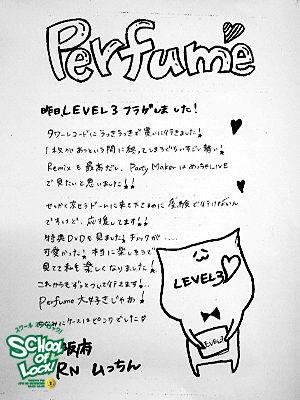 Perfume
昨日LEVEL3 フラゲしました!
タワーレコードにうっきうっきで買いに行きました!
1枚があっという間に終ってしまうぐらいすごし勢い!
Remixも最高だし、Party MakerはめっちゃLIVE
で見たいと思いました!!
せっかく京セラドームに来て下さるのに受験で行けない
ですけど、応援してます!!
特典DVDも見ました!チョックが.....
可愛かった!本当に楽しそうで
見てて私も楽しくなりました!
これからもずっとついて行きます!
Perfume大好きじゃあ!
ちなみにケースはピンクでした♡
LEVEL3
LEVEL3
スクール オブ ロック!
SCHOOL OF LOCK!
阪府
RN むっちん